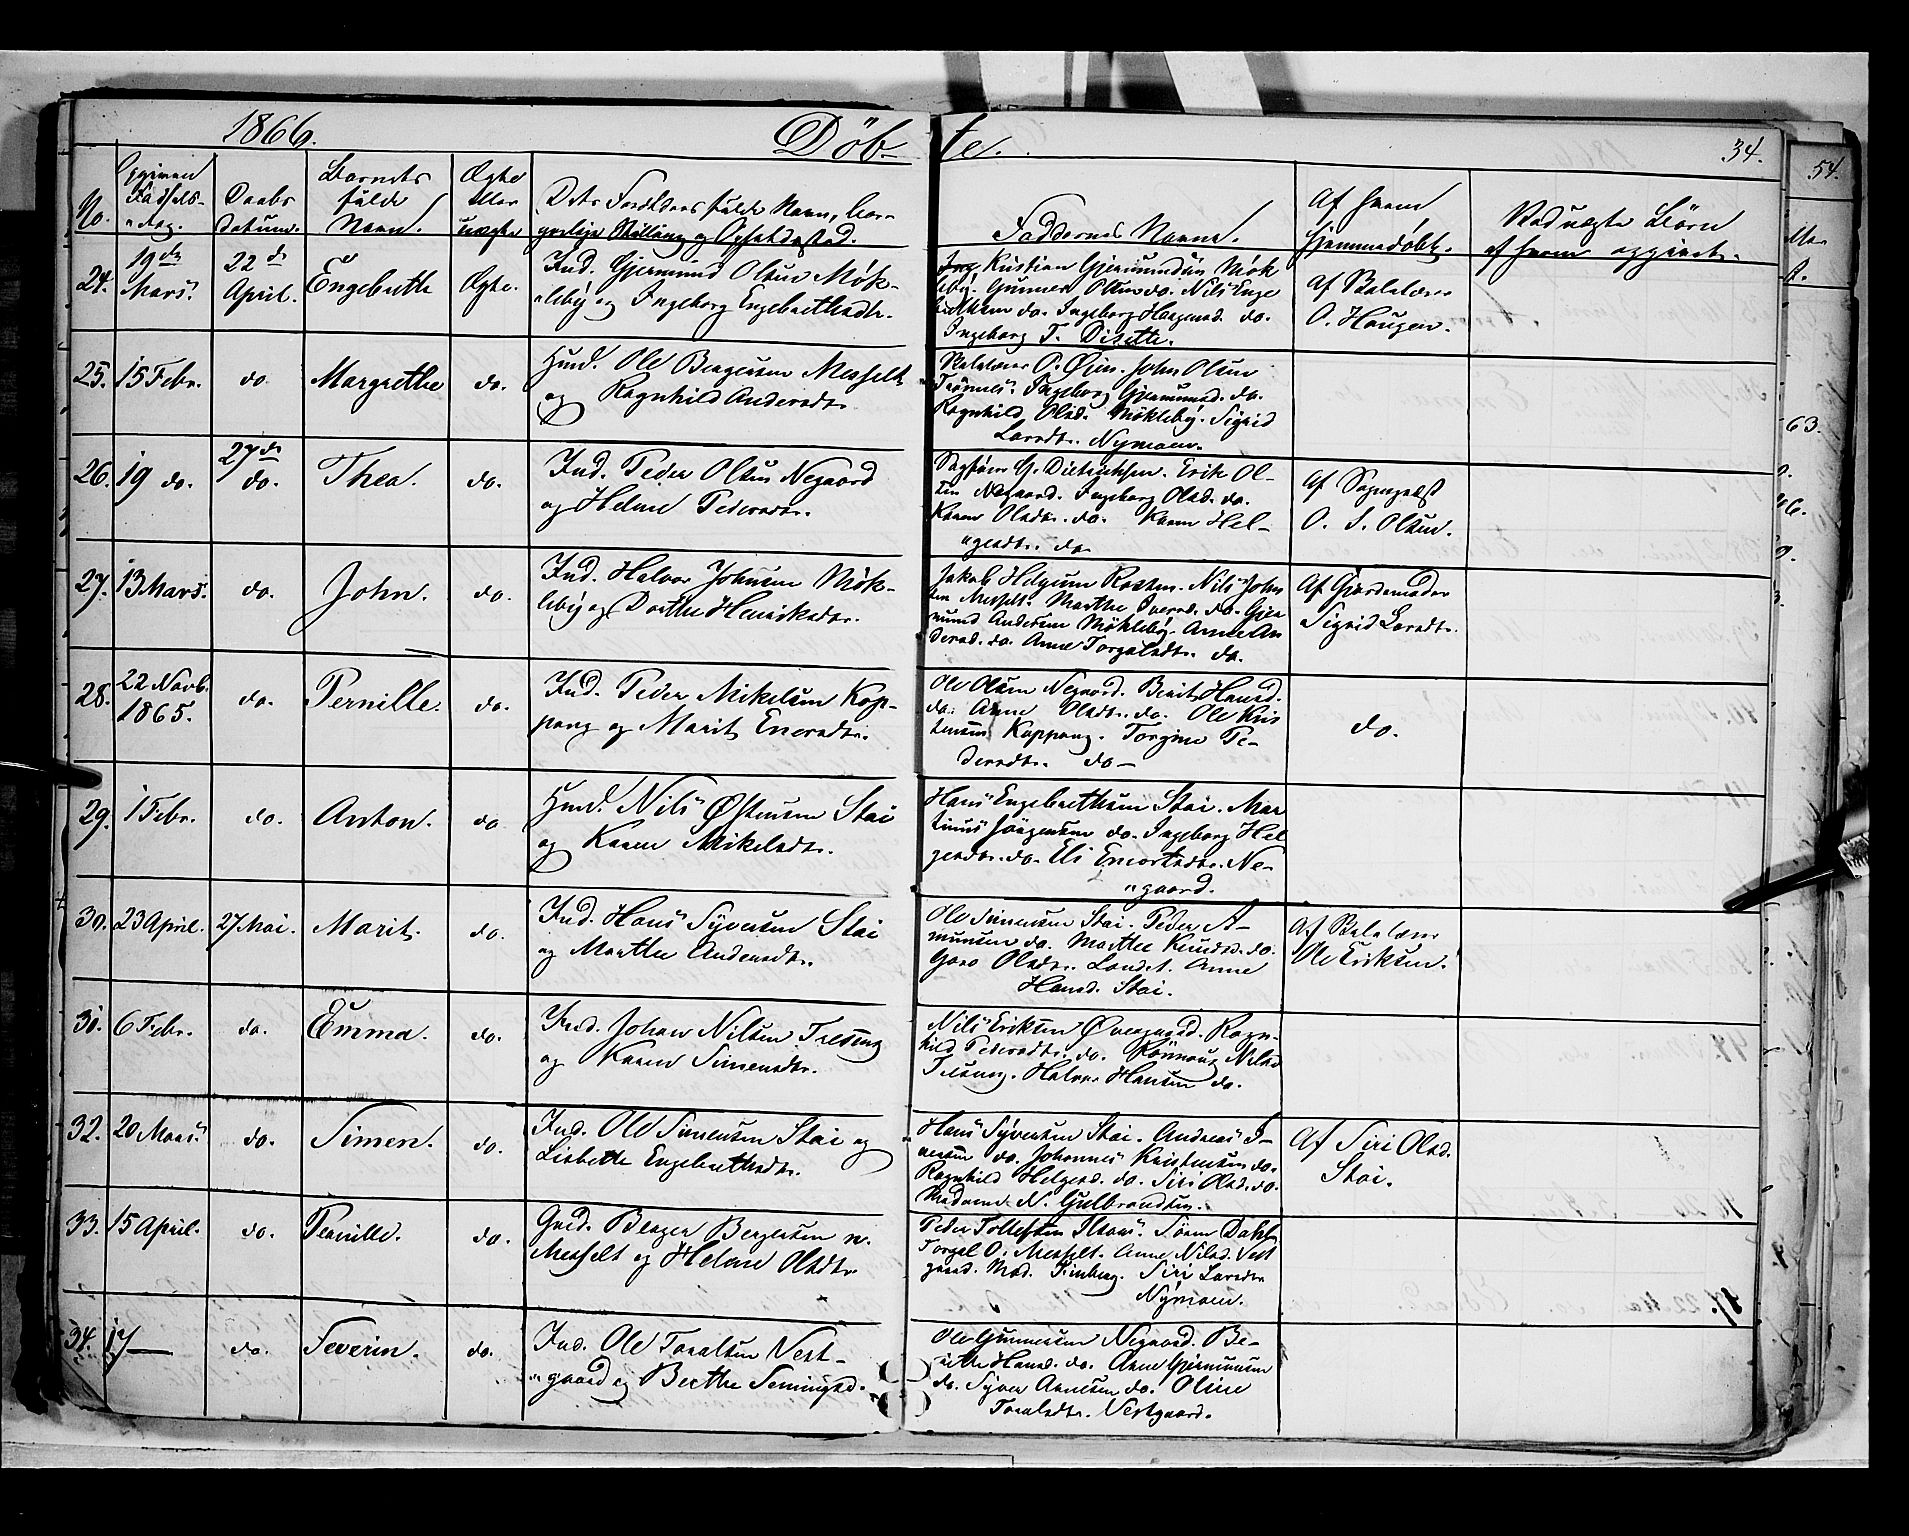 1866.
Döb- te.
34.
54.
No.
Opgiven Fødsels- dag.
Daabs Datum.
Barnets fulde Navn.
Ægte eller uægte
Dets Forældres fulde Navn, bor-
gerlige Stilling og Opholdssted.
Faddernes Navne.
Af hvem hjemmedøbt.
Ved uægte Börn
af hvem opgivet.
24. 19de Mars. 22de April. Engebrethe Ægte.
Ind. Gjermund Olsen Mök-
leby og Ingeborg Engebrethsdtr.
Kristian Gjermundsen Mök
leby. Gunner Olsen do. Nils Enge
brethsen do. Ingeborg Haagensd. do.
Ingeborg T. Disette.
Af Skolelærer
O. Haugen.
25. 15 Febr. do. Margrethe do.
Husd. Ole Bergersen Messelt
og Ragnhild Andersdtr.
Skolelærer P. Øien. John Olsen
Trönnes. Ingeborg Gjermunsd. do.
Ragnhild Olsd. Mökleby. Sigrid
Larsdtr. Nymoen.
26. 19 do. 27de do. Thea. do.
Ind. Peder Olsen Negaard
og Helene Pedersdtr.
G. Dietrichsen. Erik Ol-
sen Negaard. Ingeborg Olsd. do.
Karen Olsdtr. do. Karen Hel-
gesdtr. do
Af
O. S. Olsen.
27. 13 Mars. do. John. do.
Ind. Halvor Johnsen Mök-
leby og Dorthe Henriksdtr.
Jakob Helgesen Rasten. Nils John
sen Messelt. Marthe Iversd. do. Gjer
mund Andersen Mökleby. Anne An
dersd. do. Anne Torgalsdtr. do.
Af Gjordemoder
Sigrid Larsdtr.
28. 22 Novb. 1865. do. Pernille. do.
Ind. Peder Mikelsen Kop-
pang og Marit Enersdtr.
Ole Olsen Negaard. Berit Hansd.
do. Anne Olsdtr. do. Ole Kris
tensen Koppang. Torgine Pe-
dersdtr. do-
do.
29. 1 Febr. do. Anton. do
Husd. Nils Østensen Stai
og Karen Mikelsdtr.
Hans Engebrethsen Stai. Mar
tinus Jörgensen do. Ingeborg Hel
gesdtr. do. Eli Enersdtr. Ne-
gaard.
30. 23 April. 27 Mai. Marit. do.
Ind. Hans Syversen Stai
og Marthe Andersdtr.
Ole Simensen Stai. Peder A-
munsen do. Marthe Knudsd. do.
Goro Olsdtr. Landet. Anne
Hansd. Stai.
Af Skolelærer
Ole Eriksen.
31. 6 Febr. do. Emma. do.
Ind. Johan Nilsen Treseng
og Karen Simensdtr.
Nils Eriksen Øvergaard. Ragn-
hild Pedersdtr. do. Rönnaug Nilsd
Treseng. Halvor Hansen do.
32. 20 Mars. do. Simen. do.
Ind. Ole Simensen Stai og
Lisbette Engebrethsdtr.
Hans Syversen Stai. Andreas I-
versen do. Johannes Kristensen do.
Ragnhild Helgesd. do. Siri Olsd. do.
N. Gulbrandsen.
Af Siri Olsd.
Stai.
33. 15 April. do. Pernille. do.
Berger Bergersen n.
Messelt og Helene Olsdtr
Peder Tollefsen Stai. Sören Dahl
Torgal O. Messelt. Anne Nilsd. Vest
gaard. Mad. Simberg. Siri Larsdtr
Nymoen.
34. 17 — do. Severin. do.
Ind. Ole Toralsen Vest-
gaard og Berthe Semingsd.
Ole Gunnersen Negaard. Be-
rethe Hansd. do. Arne Gjermunsen
do. Syver Arnesen do. Oline
Toralsdtr. Vestgaard.